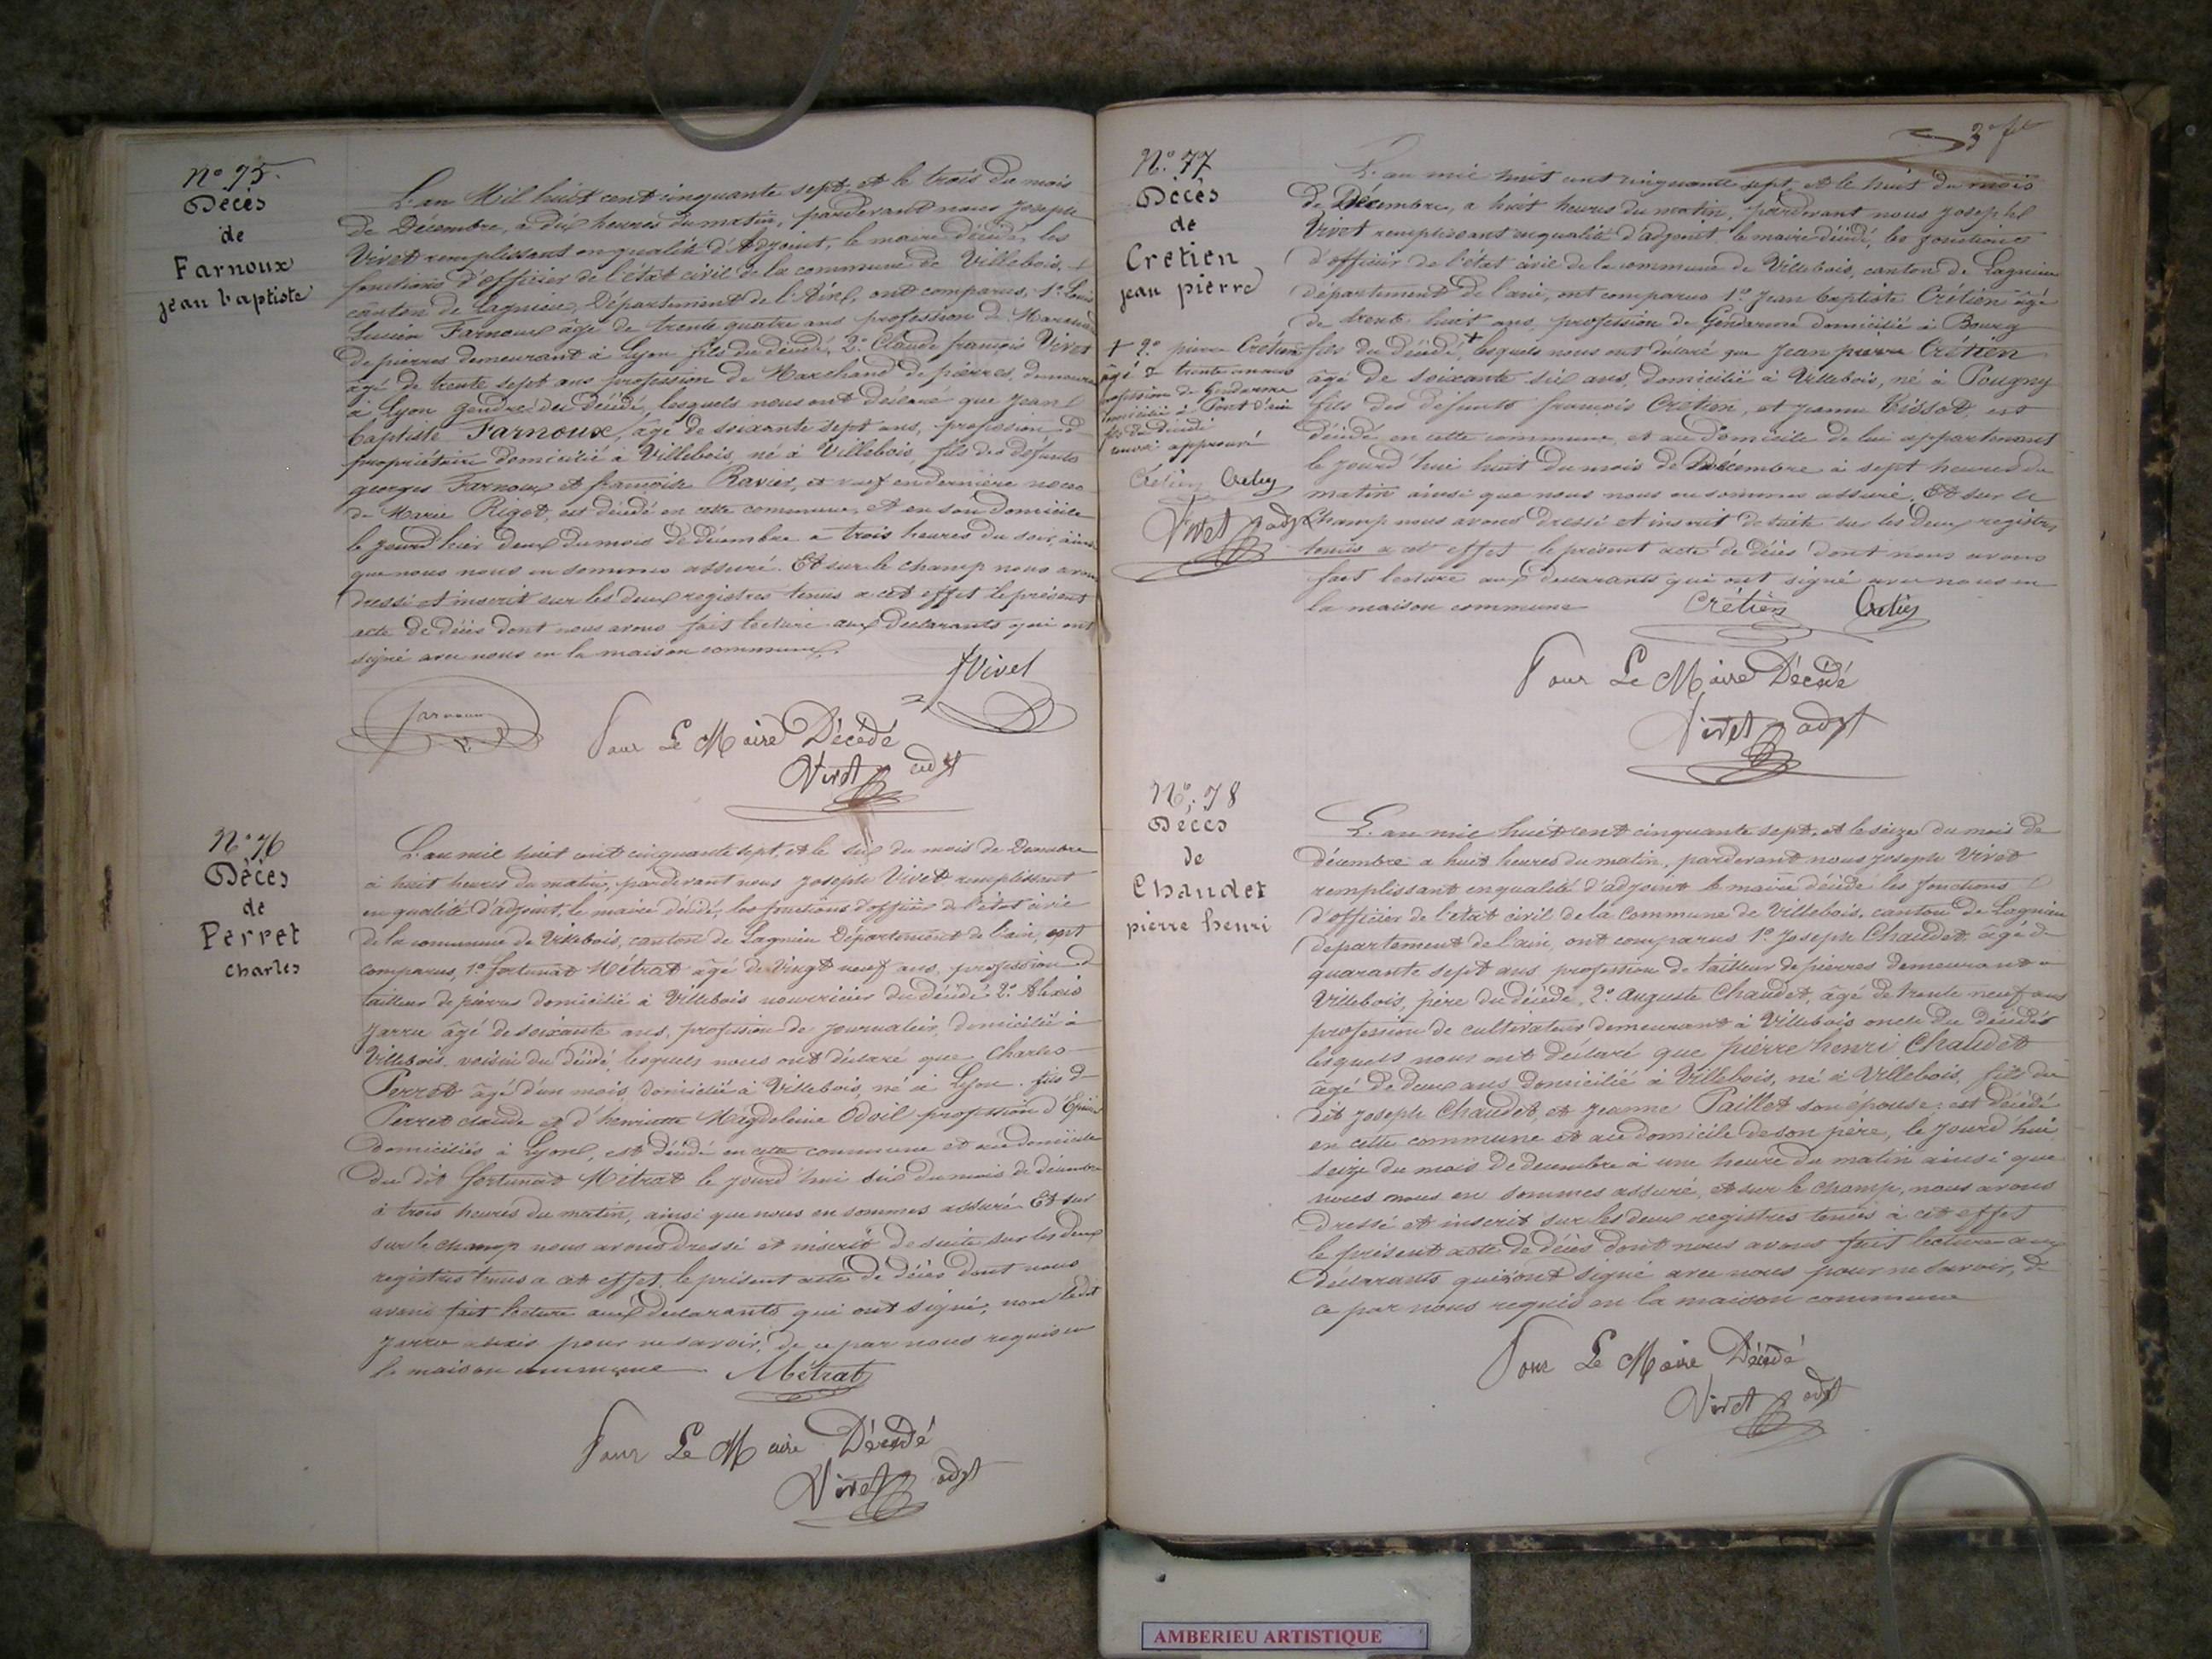 N° 75.
Décès
de
Farnoux
jean baptiste
L'an Mil huit cent cinquante sept, et le trois du mois
de Décembre, à dix heures du matin, pardevant nous Joseph
Vivet remplissant en qualité d'Adjoint, le maire décédé, les
fonctions d'officier de l'état civil de la commune de Villebois,
canton de Lagnieu, Département de l'Ain, ont comparus, 1° Louis
Lucien Farnoux âgé de trente quatre ans profession de Marchand
de pierres demeurant à Lyon fils du décédé, 2° Claude françois Vivet
âgé de trente sept ans profession de Marchand de pierres, demeurant
à Lyon gendre du décédé, lesquels nous ont déclaré que Jean
baptiste Farnoux, âgé de soixante sept ans, profession de
propriétaire domicilié à Villebois, né à Villebois, fils des défunts
georges Farnoux et françoise Ravier, et veuf en dernière noces
de Marie Rigot, est décédé en cette commune, et en son domicile
le jourd'hier deux du mois de décembre a trois heures du soir, ainsi
que nous nous en sommes assuré. Et sur le champ nous avons
dressé et inscrit sur les deux registres tenus a cet effet le présent
acte de décès dont nous avons fait lecture aux déclarants qui ont
signé avec nous en la maison commune.
Farnoux
fVivet
Pour Le Maire Décédé
Vivet adjt
N° 76
Décès
de
Perret
charles
L'an mil huit cent cinquante sept, et le six du mois de Décembre
à huit heures du matin, pardevant nous Joseph Vivet remplissant
en qualité d'adjoint, le maire décédé, les fonctions d'officier de l'état civil
de la commune de Villebois, canton de Lagnieu Département de l'ain, ont
comparus, 1° fortunat Métrat âgé de vingt neuf ans, profession de
tailleur de pierres domicilié à Villebois nourricier du décédé 2° Alexis
Jarru âgé de soixante ans, profession de journalier, domicilié à
Villebois, voisin du décédé, lesquels nous ont déclaré que Charles
Perret âgé d'un mois, domicilié à Villebois, né à Lyon, fils de
Perret claude et d'henriette Magdeleine profession d'Epicier
domiciliés à Lyon, est décédé en cette commune et au domicile
du dit fortunat Métrat le jourd'hui six du mois de décembre
à trois heures du matin, ainsi que nous en sommes assuré. Et sur
sur le champ nous avons dressé et inscrit de suite sur les deux
registres tenus a cet effet, le présent acte de décès dont nous
avons fait lecture aux déclarants qui ont signé, non ledit
Jarru alexis pour ne savoir, de ce par nous requis en
la maison commune Métrat
Pour Le Maire Décédé
Vivet adjt
N° 77
Décès
de
Crétien
jean pierre
L'an mil huit cent cinquante sept, et le huit du mois
de Décembre, a huit heures du matin, pardevant nous Joseph
Vivet remplissant en qualité d'adjoint le maire décédé, les fonctions
d'officier de l'état civil de la commune de Villebois, canton de Lagnieu
département de l'ain, ont comparus 1° Jean baptiste Crétien âgé
de trente huit ans, profession de Gendarme domicilié à Bourg
fils du décédé + lesquels nous ont déclaré que Jean pierre Crétien
âgé de soixante six ans, domicilié à Villebois, né à Pougny
fils des défunts françois Crétien, et Jeanne Tissot est
décédé en cette commune, et au domicile de lui appartenant
le jourd'hui huit du mois de Décembre à sept heures du
matin ainsi que nous nous en sommes assuré. Et sur le
champ nous avons dressé et inscrit de suite sur les deux registres
tenus a cet effet le présent acte de décès dont nous avons
fait lecture aux déclarants qui ont signé avec nous en
la maison commune Crétien Crétien
+ 2° pierre Crétien
âgé de trente ans
profession de Gendarme
domicilié à Pont d'ain
fils du décédé
renvoi approuvé
Crétien Crétien
Vivet adjt
Pour Le Maire Décédé
Vivet adjt
N° 78
Décès
de
Chaudet
pierre henri
L'an mil huit cent cinquante sept, et le seize du mois de
décembre a huit heures du matin, pardevant nous Joseph Vivet
remplissant en qualité d'adjoint le maire décédé les fonctions
d'officier de l'état civil de la commune de Villebois, canton de Lagnieu
département de l'ain, ont comparus 1° Joseph Chaudet, âgé de
quarante sept ans, profession de tailleur de pierres demeurant a
Villebois, père du décédé, 2° Auguste Chaudet, âgé de trente neuf ans
profession de cultivateur demeurant à Villebois oncle du décédé
lesquels nous ont déclaré que pierre henri Chaudet
âgé de deux ans domicilié à Villebois, né à Villebois, fils du
dit Joseph Chaudet, et Jeanne Paillet son épouse, est décédé
en cette commune et au domicile de son père, le jourd'hui
seize du mois de décembre à une heure du matin ainsi que
nous nous en sommes assuré, et sur le champ, nous avons
dressé et inscrit sur les deux registres tenus à cet effet
le présent acte de décès dont nous avons fait lecture aux
déclarants qui ont signé avec nous pour ne savoir, de
ce par nous requis en la maison commune
Pour Le Maire Décédé
Vivet adjt
AMBERIEU ARTISTIQUE